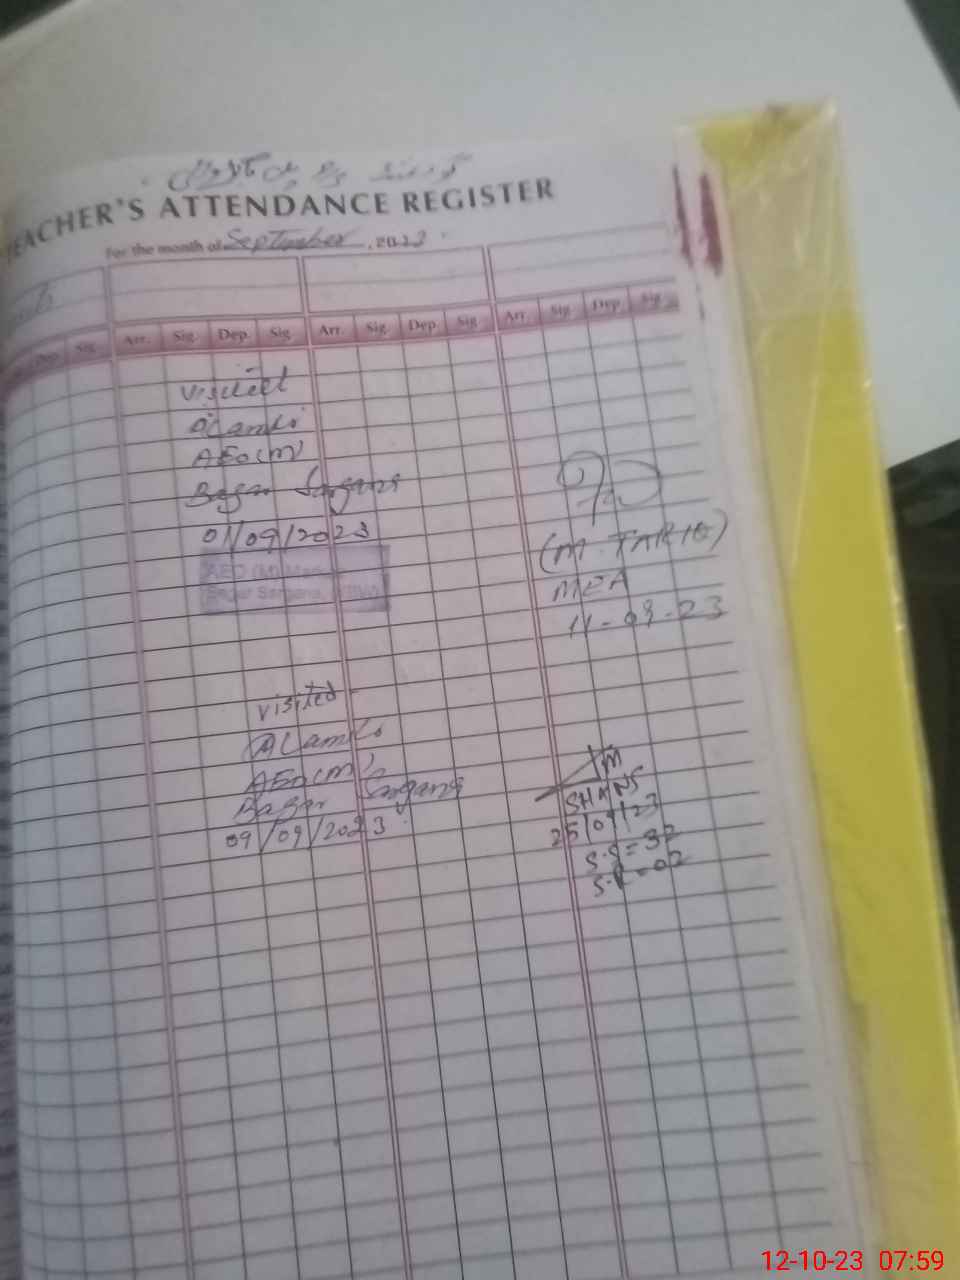 TEACHER'S ATTENDANCE REGISTER
For the month of September, 2023
Dep. Sig. Arr. Sig. Dep. Sig. Arr. Sig. Dep. Sig. Arr. Sig. Dep. Sig.
Visited
AEO(M)
Bagar Sargana
01/09/2023
AEO (M) Markaz
Bagar Sargana,
(M. TARIQ)
MEA
11-09-23
visited
AEO(M)
Bagar Sargana
09/09/2023
SHANS
25/09/23
S.S=32
=02
12-10-23 07:59